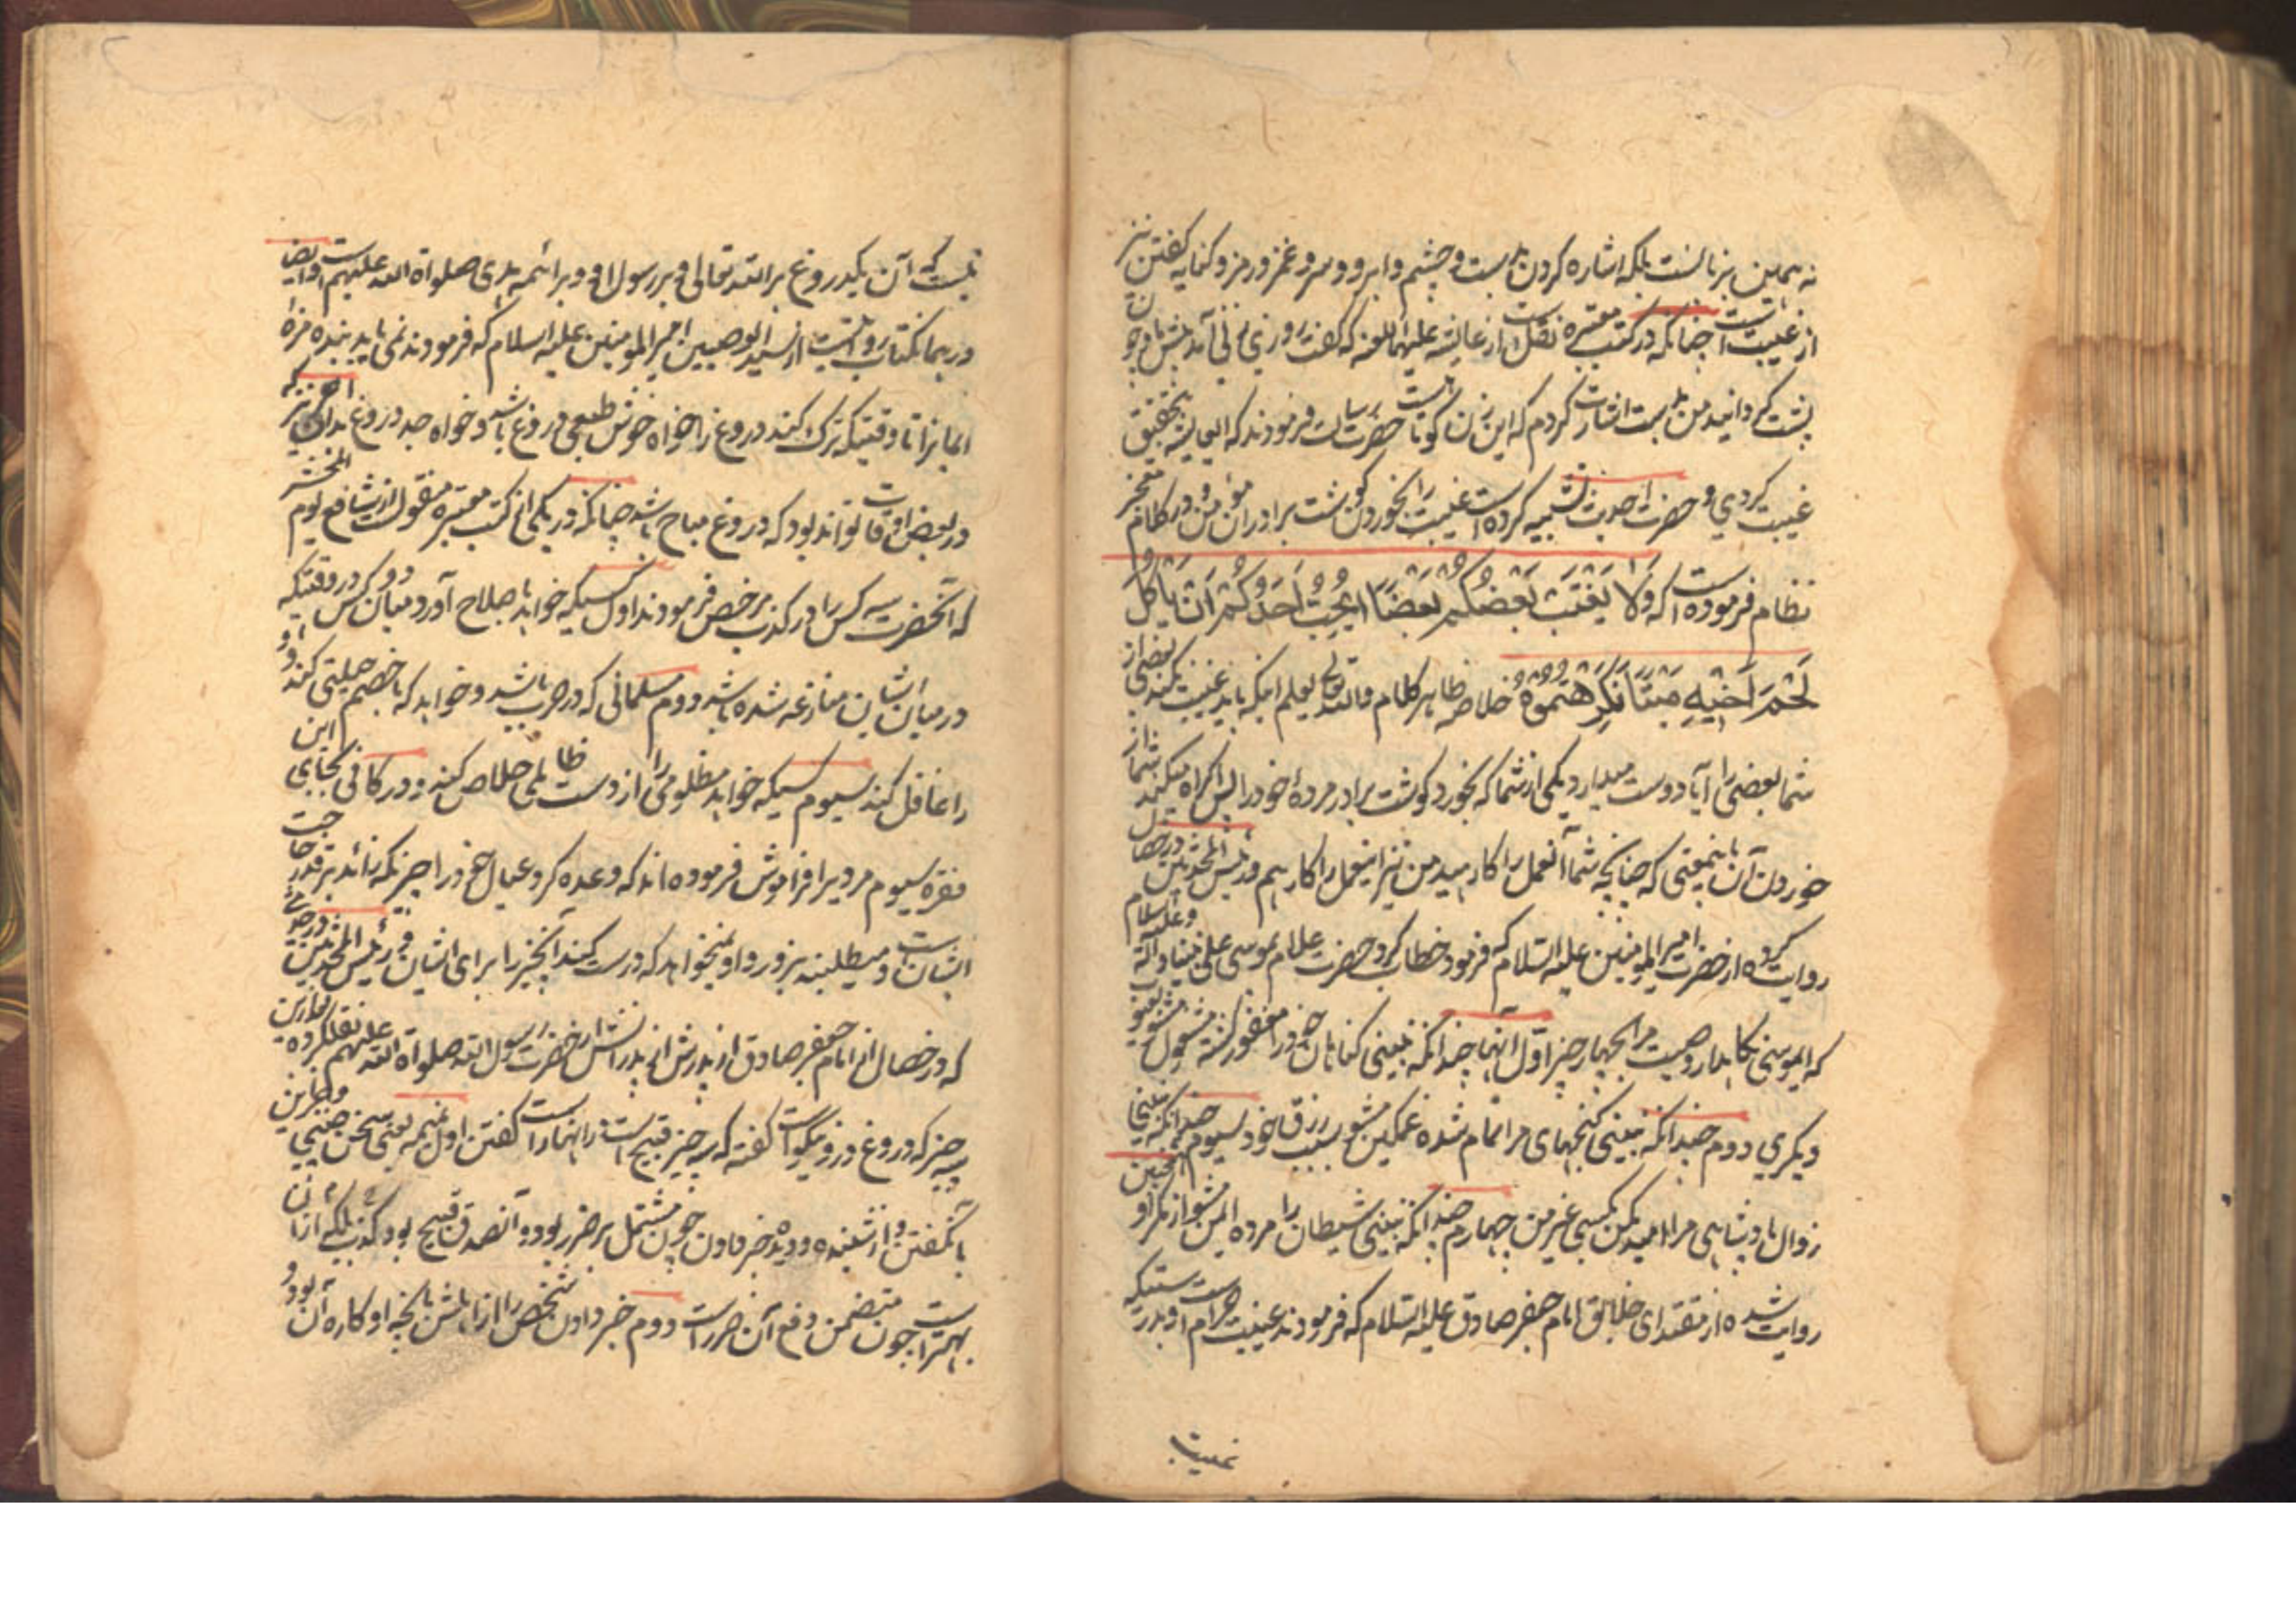 نه همین بزبانست بلکه اشاره کردن بدست و چشم و ابرو و سر و غمز و رمز و کنایه گفتن نیز
از غیبت است چنانکه در کتب معتبره نقل است از عایشه علیها اللعنه که گفت روزی زنی آمد پیش ما چون
پشت گردانید من بدست اشارت کردم که این زن کوتاه است حضرت رسالت فرمودند که ای عایشه بتحقیق
غیبت کردی و حضرت احدیت تشبیه کرده است غیبت را بخوردن گوشت برادران مؤمن و در کلام معجز
نظام فرموده است که وَلَا يَغْتَبْ بَعْضُكُمْ بَعْضًا اَيُحِبُّ اَحَدُكُمْ اَنْ يَأْكُلَ
لَحْمَ اَخِيْهِ مَيْتًا فَكَرِهْتُمُوْهُ خلاصه ظاهر کلام والله تعالی یعلم اینکه باید غیبت نکنند بعضی از
شما بعضی را آیا دوست میدارد یکی از شما که بخورد گوشت برادر مرده خود را پس اکراه میکنید شما از
خوردن آن باینمعنی که چنانچه شما آنعمل را کارهید من نیز اینعمل را کارهم و رئیس المحدثین در خصال
روایت کرده از حضرت امیر المومنین علیه السلام که فرمود خطاب کرد حضرت علام بموسی علی نبینا و آله و علیه السلام
که ایموسی نگاهدار وصیت مرا بچهار چیز اول آنها چندانکه نبینی گناهان خود را مغفور گشته مشغول مشو بعیوب
دیگری دوم چندانکه نبینی گنجهای مرا تمام شده غمگین مشو بسبب رزق خود سیوم چندانکه نبینی
زوال پادشاهی مرا امید مکن بکسی غیر من چهارم چندانکه نبینی شیطان را مرده ایمن مشو از مکر او همچنین
روایت شده از مقتدای خلایق امام جعفر صادق علیه السلام که فرمودند غیبت حرام است و بدرستیکه
غیبت
نیست که آن یکدروغ بر الله تعالی و بر رسول او و بر ائمه هدی صلواة الله علیهم است و ایضا
در همانکتاب روایت است از سید الوصیین امیر المومنین علیه السلام که فرمودند نمی یابد بنده مزهٔ
ایمانرا تا وقتیکه ترک کند دروغ را خواه خوش طبعی دروغ باشد و خواه جد دروغ بدانکه نیز
در بعض اوقات تواند بود که دروغ مباح باشد چنانکه در یکی از کتب معتبره منقول است از شافع یوم المحشر
که آنحضرت سه کس را در کذب مرخص فرمودند اول کسیکه خواهد باصلاح آورد میان دو کس در وقتیکه
در میان ایشان منازعه شده باشد دوم مسلمانی که در حرب باشد و خواهد که با خصم حیلتی کند و او
را غافل کند سیوم کسیکه خواهد مظلومی را از دست ظالمی خلاص کند و در کافی بجای این
فقره سیوم مردیرا فراموش فرموده اند که وعده کرد عیال خود را چیزیکه زائد بر قدر حاجت
ایشان است و میطلبند بزور و او نمیخواهد که درست کند آنچیز را برای ایشان و رئیس المحدثین در جزء
که در خصال از امام جعفر صادق از پدرش از پدرانش از حضرت رسول الله صلواة الله علیهم نقلکرده
سه چیز که دروغ در و نیکو است گفته که سه چیز قبیح است در آنها راست گفتن اول نمیمه یعنی سخن چینی
بآنگفتن و از شنیده و دیده خبر دادن چون مشتمل بر ضرر بود آنصدق قبیح بود کذب بلکه از آن
بهتر است چون متضمن دفع آن ضرر است دوم خبر دادن شخص را از اهلش بآنچه او کاره آن بود و